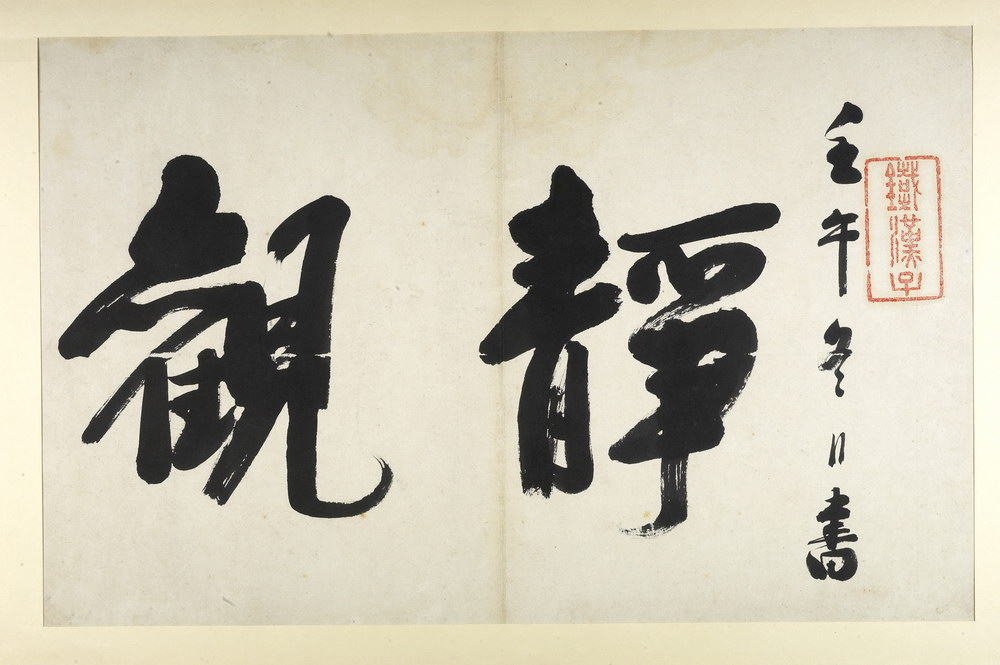 壬午冬日書
鐵漢子
靜觀